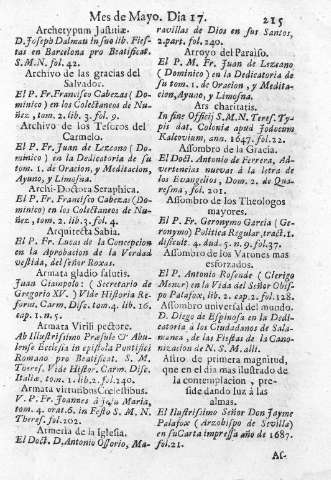 Mes de Mayo. Dia 17. 215
Archetypum Justitiæ.
D. Joseph Dalmau in suo lib. Fies-
tas en Barcelona pro Beatificat.
S. M. N. fol. 42.
Archivo de las gracias del
Salvador.
El P. Fr. Francisco Cabezas (Do-
minico) en los Colectaneos de Nu-
ñez, tom. 2. lib. 3. fol. 9.
Archivo de los Tesoros del
Carmelo.
El P. Fr. Juan de Lezcano (Do-
minico) en la Dedicatoria de su
tom. 1. de Oracion, y Meditacion,
Ayuno, y Limosna.
Archi-Doctora Seraphica.
El P. Fr. Francisco Cabezas (Do-
minico) en los Colectaneos de Nu-
ñez, tom. 2. lib. 3. fol. 4.
Arquitecta Sabia.
El P. Fr. Lucas de la Concepcion
en la Aprobacion de la Verdad
vestida, del señor Boxas.
Armata gladio salutis.
Juan Ciampolo: (Secretario de
Gregorio XV.) Vide Historia Re-
form. Carm. Disc. tom. 4. lib. 16.
cap. 1. n. 5.
Armata Virili pectore.
Ab Illustrisimo Præsule & Abu-
lense Ecclesia in epistola Pontifici
Romano pro Beatificat. S. M.
Theres. Vide Histor. Carm. Disc.
Italiæ, tom. 1. lib. 2. fol. 240.
Armata virtutibus Cœlestibus.
V. P. Fr. Joannes à Jesu Maria,
tom. 4. orat. 6. in Festo S. M. N.
Theres. fol. 202.
Armeria de la Iglesia.
El Doct. D. Antonio Ossorio, Ma-
ravillas de Dios en sus Santos,
2. part. fol. 240.
Arroyo del Paraíso.
El P. M. Fr. Juan de Lezcano
(Dominico) en la Dedicatoria de
su tom. 1. de Oracion, y Medita-
cion, Ayuno, y Limosna.
Ars charitatis.
In fine Officij S. M. N. Teres. Ty-
pis dat. Colonia apud Jodocum
Kalcovium, ann. 1647. fol. 22.
Assombro de la Gracia.
El Doct. Antonio de Ferrera, Ad-
vertencias nuevas á la letra de
los Evangelios, Dom. 2. de Qua-
resma, fol. 201.
Assombro de los Theologos
mayores.
El P. Fr. Geronymo Garcia (Ge-
ronymo) Politica Regular, tract. 1.
dificult. 4. dud. 5. n. 9. fol. 37.
Assombro de los Varones mas
esforzados.
El P. Antonio Rosende (Clerigo
Menor) en la Vida del Señor Obis-
po Palafox, lib. 2. cap. 2. fol. 128.
Assombro universal del mundo.
D. Diego de Espinosa en la Dedi-
catoria á los Ciudadanos de Sala-
manca, de las Fiestas de la Cano-
nizacion de N. S. M. allì.
Astro de primera magnitud,
que en el dia mas ilustrado de
la contemplacion, pre-
side dando luz à las
almas.
El Ilustrisimo Señor Don Jayme
Palafox (Arzobispo de Sevilla)
en su Carta impressa año de 1687.
fol. 21.
As-